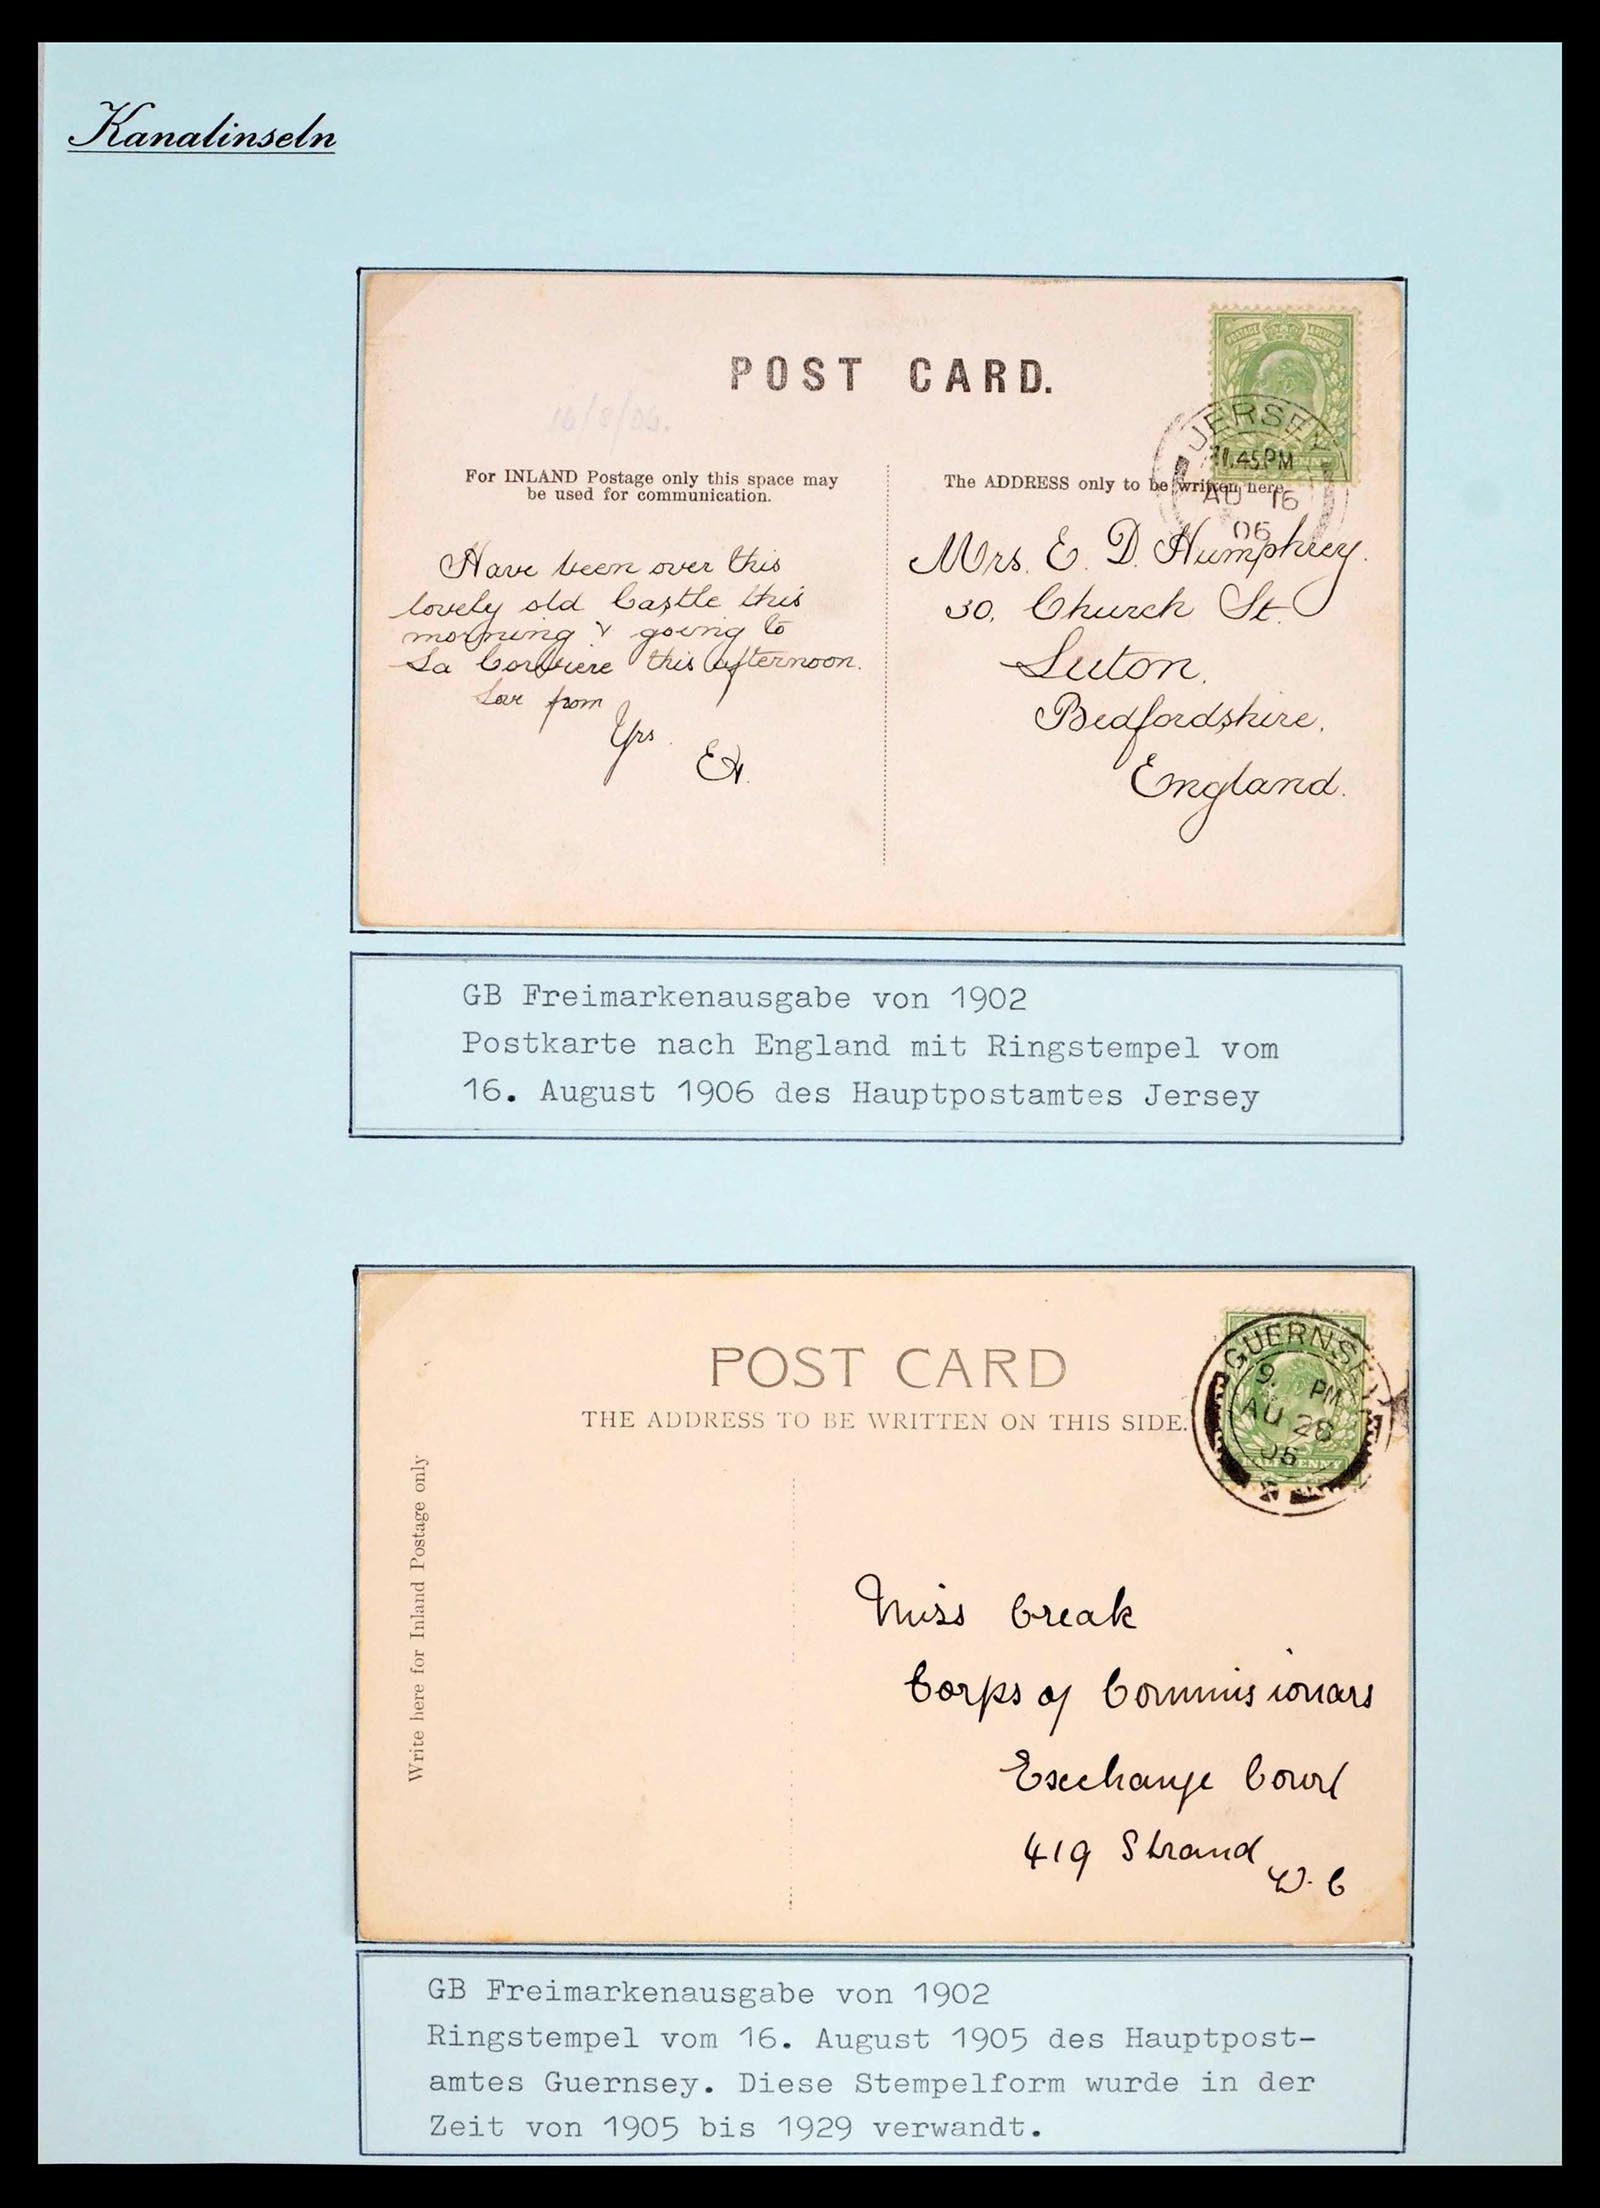 Kanalinseln
POST CARD.
16/8/06.
For INLAND Postage only this space may
be used for communication.
The ADDRESS only to be written here.
JERSEY
11.45PM
AU 16
06
Have been over this
lovely old Castle this
morning & going to
La Corbiere this afternoon.
Love from
Yrs.
Mrs. E. D. Humphrey.
30. Church St.
Luton.
Bedfordshire.
England.
GB Freimarkenausgabe von 1902
Postkarte nach England mit Ringstempel vom
16. August 1906 des Hauptpostamtes Jersey
POST CARD
THE ADDRESS TO BE WRITTEN ON THIS SIDE.
Write here for Inland Postage only
GUERNSEY
9. PM
AU 28
HALFPENNY
Miss Creak
Corps of Commissionars
Exchange Court
419 Strand
W.C
GB Freimarkenausgabe von 1902
Ringstempel vom 16. August 1905 des Hauptpost-
amtes Guernsey. Diese Stempelform wurde in der
Zeit von 1905 bis 1929 verwandt.